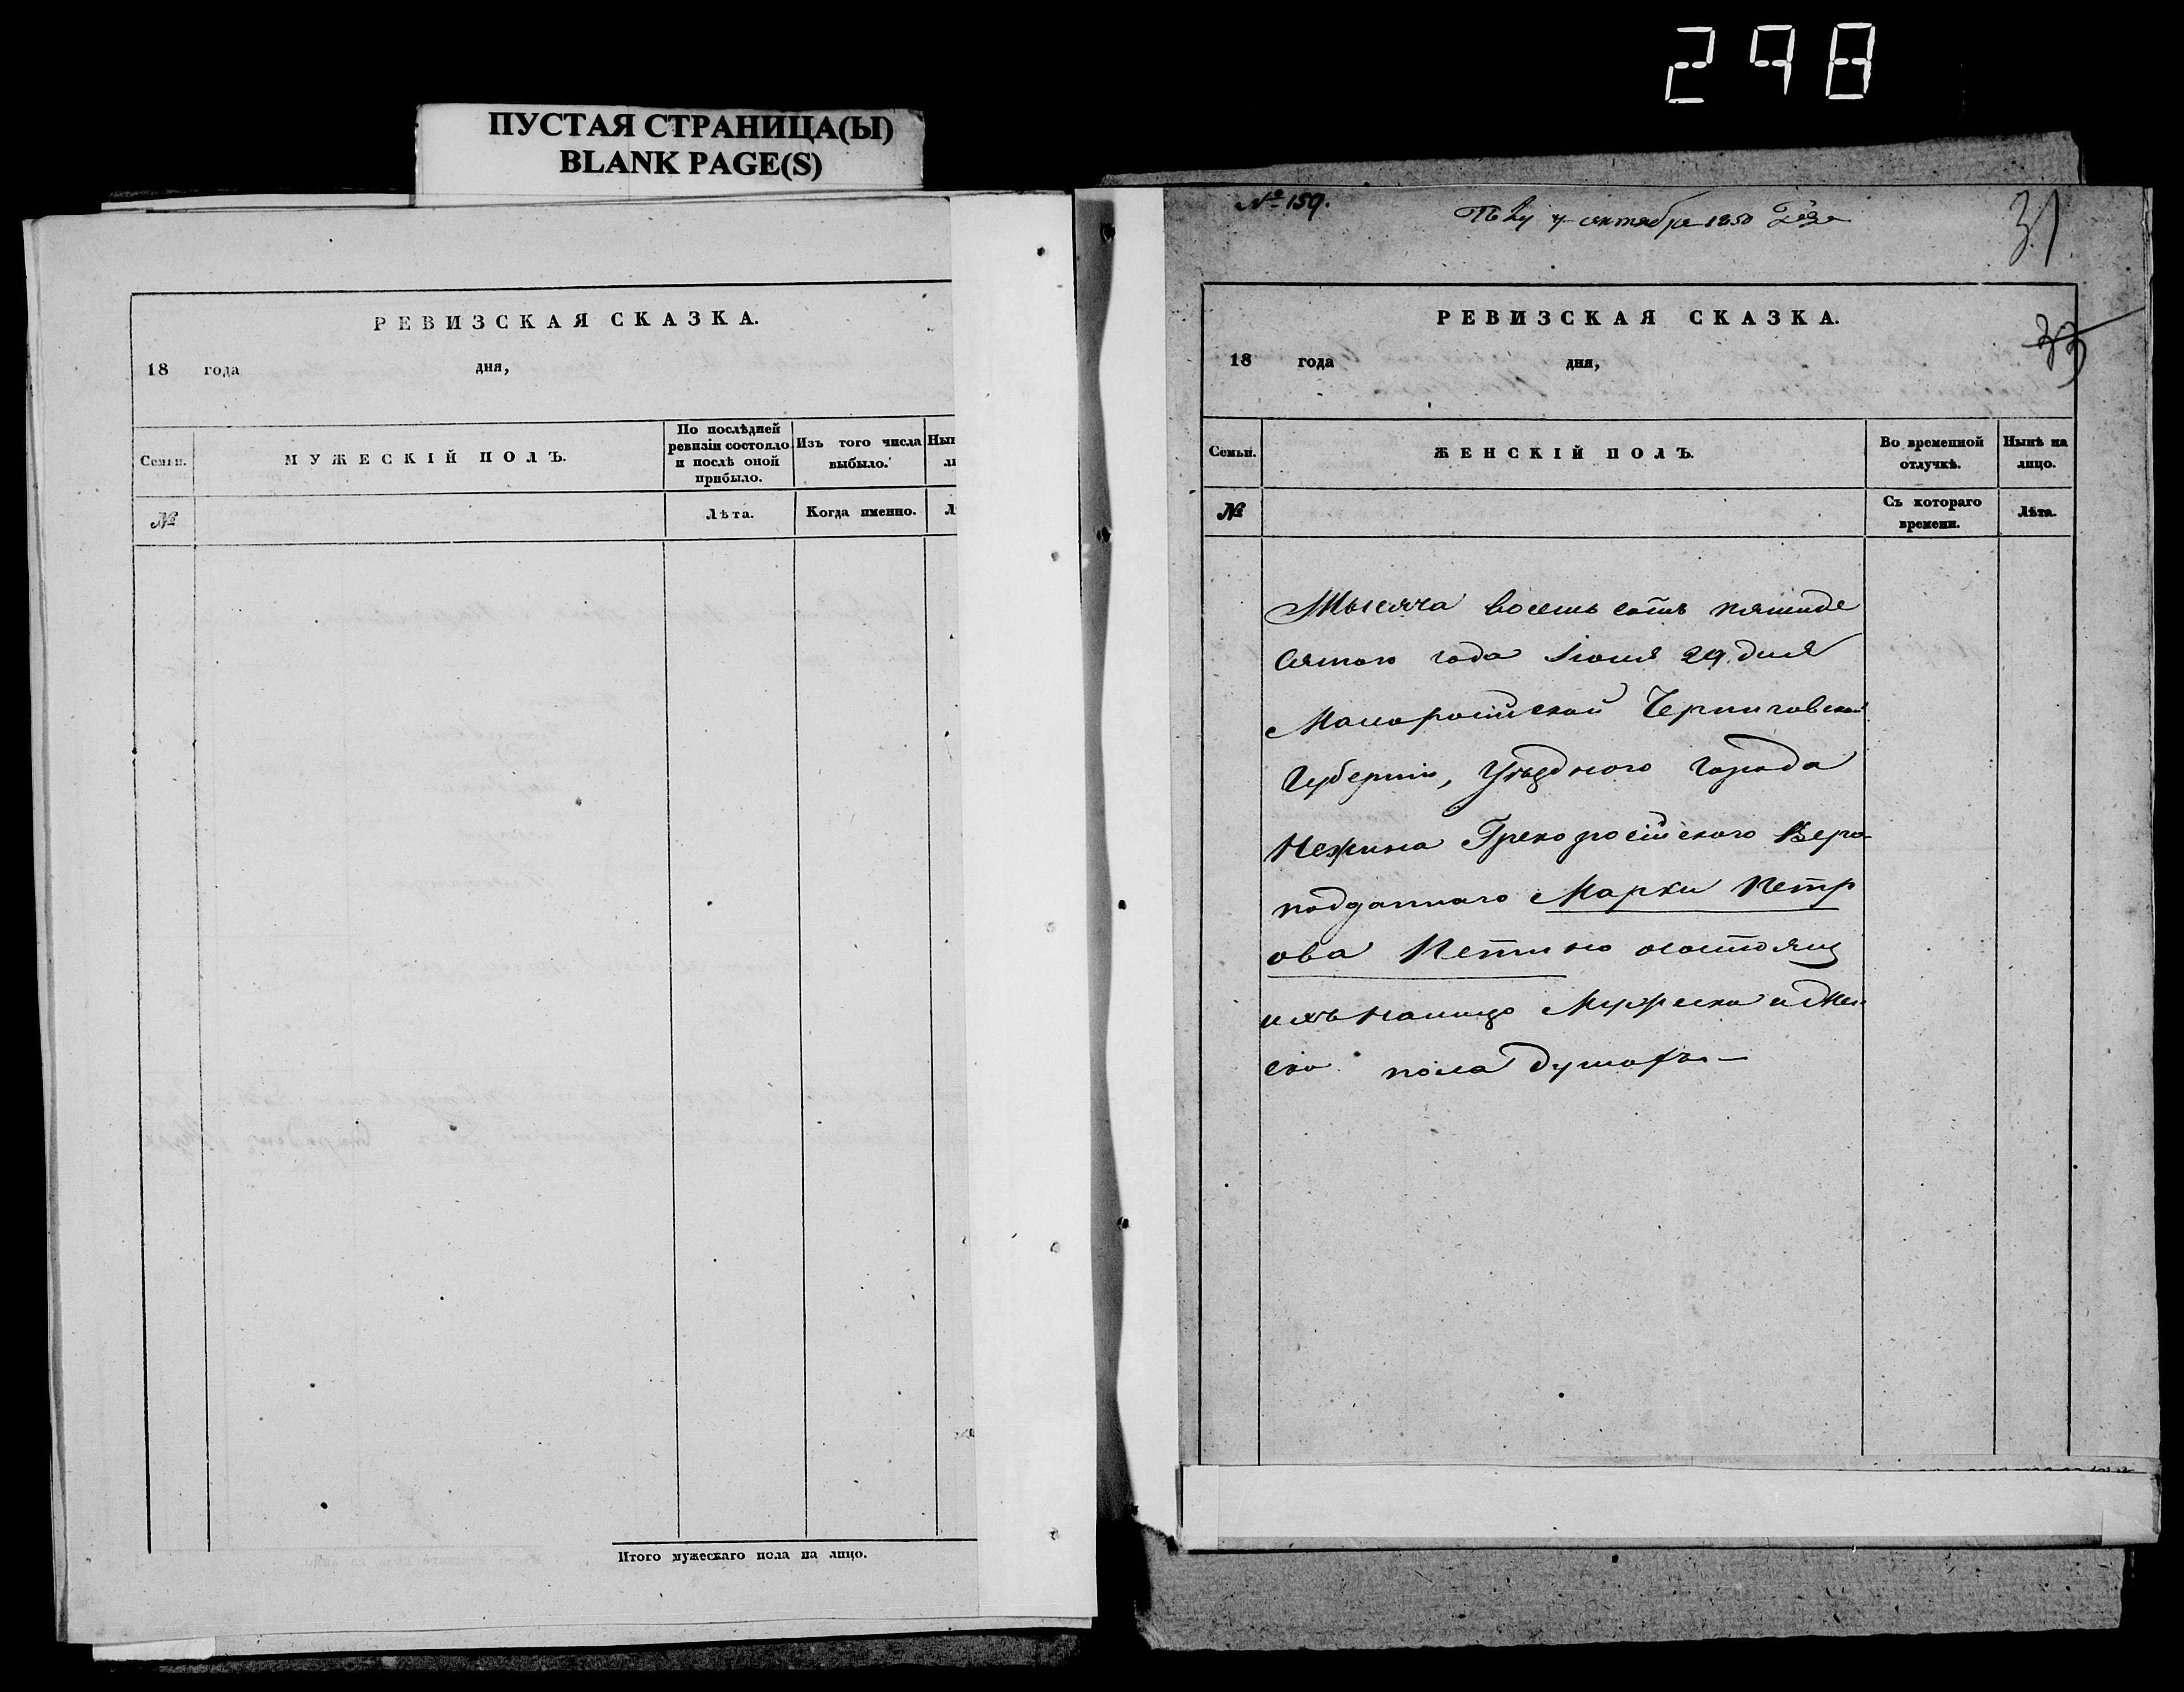 298
ПУСТАЯ СТРАНИЦА(Ы)
BLANK PAGE(S)
РЕВИЗСКАЯ СКАЗКА.
18 года дня,
Семьи.
МУЖЕСКІЙ ПОЛЪ.
По послѣдней
ревизіи состояло
и послѣ оной
прибыло.
Изъ того числа
выбыло.
Ны
ли
№
Лѣта.
Когда именно.
Л
Итого мужескаго пола на лицо.
№ 159.
сентября 1850
31
РЕВИЗСКАЯ СКАЗКА.
18 года дня,
Семьи.
ЖЕНСКІЙ ПОЛЪ.
Во временной
отлучкѣ.
Нынѣ на
лицо.
№
Съ котораго
времени.
Лѣта.
Тысяча восемь сотъ пятиде
сятого года Іюня 29 дня
Малоросійской Черниговской
Губерніи, Уѣздного Города
Нежина Грекоросійского Веро-
подданаго Марки Петр
ова Петино состоящ
ихъ налицо Мужеска и Жен
ско пола душахъ —